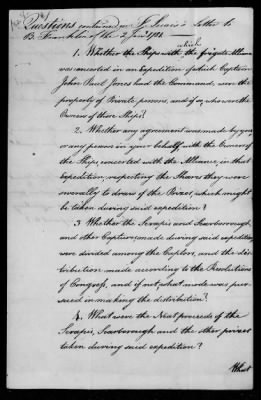 Questions contained in J. Lewis's Letter to
B. Franklin of the 2 Jan 1782
1. Whether the Ships with which the frigate Alliance
was concerted in an Expedition of which Captain
John Paul Jones had the Command, were the
property of Private persons, and if so, who were the
Owners of those Ships?
2. Whether any agreement was made by you
or any person in your behalf, with the Owners of
the Ships, concerted with the Alliance, in that
Expedition, respecting the Shares they were
severally to draw of the Prizes, which might
be taken during said expedition?
3 Whether the Serapis and Scarborough,
and other Captures, made during said expedition
were divided among the Captors, and the dis-
tribution made according to the Resolutions
of Congress, and if not, what mode was pur-
sued in making the distribution?
4. What were the Neat proceeds of the
Serapis, Scarborough and the other prizes
taken during said expedition?
What